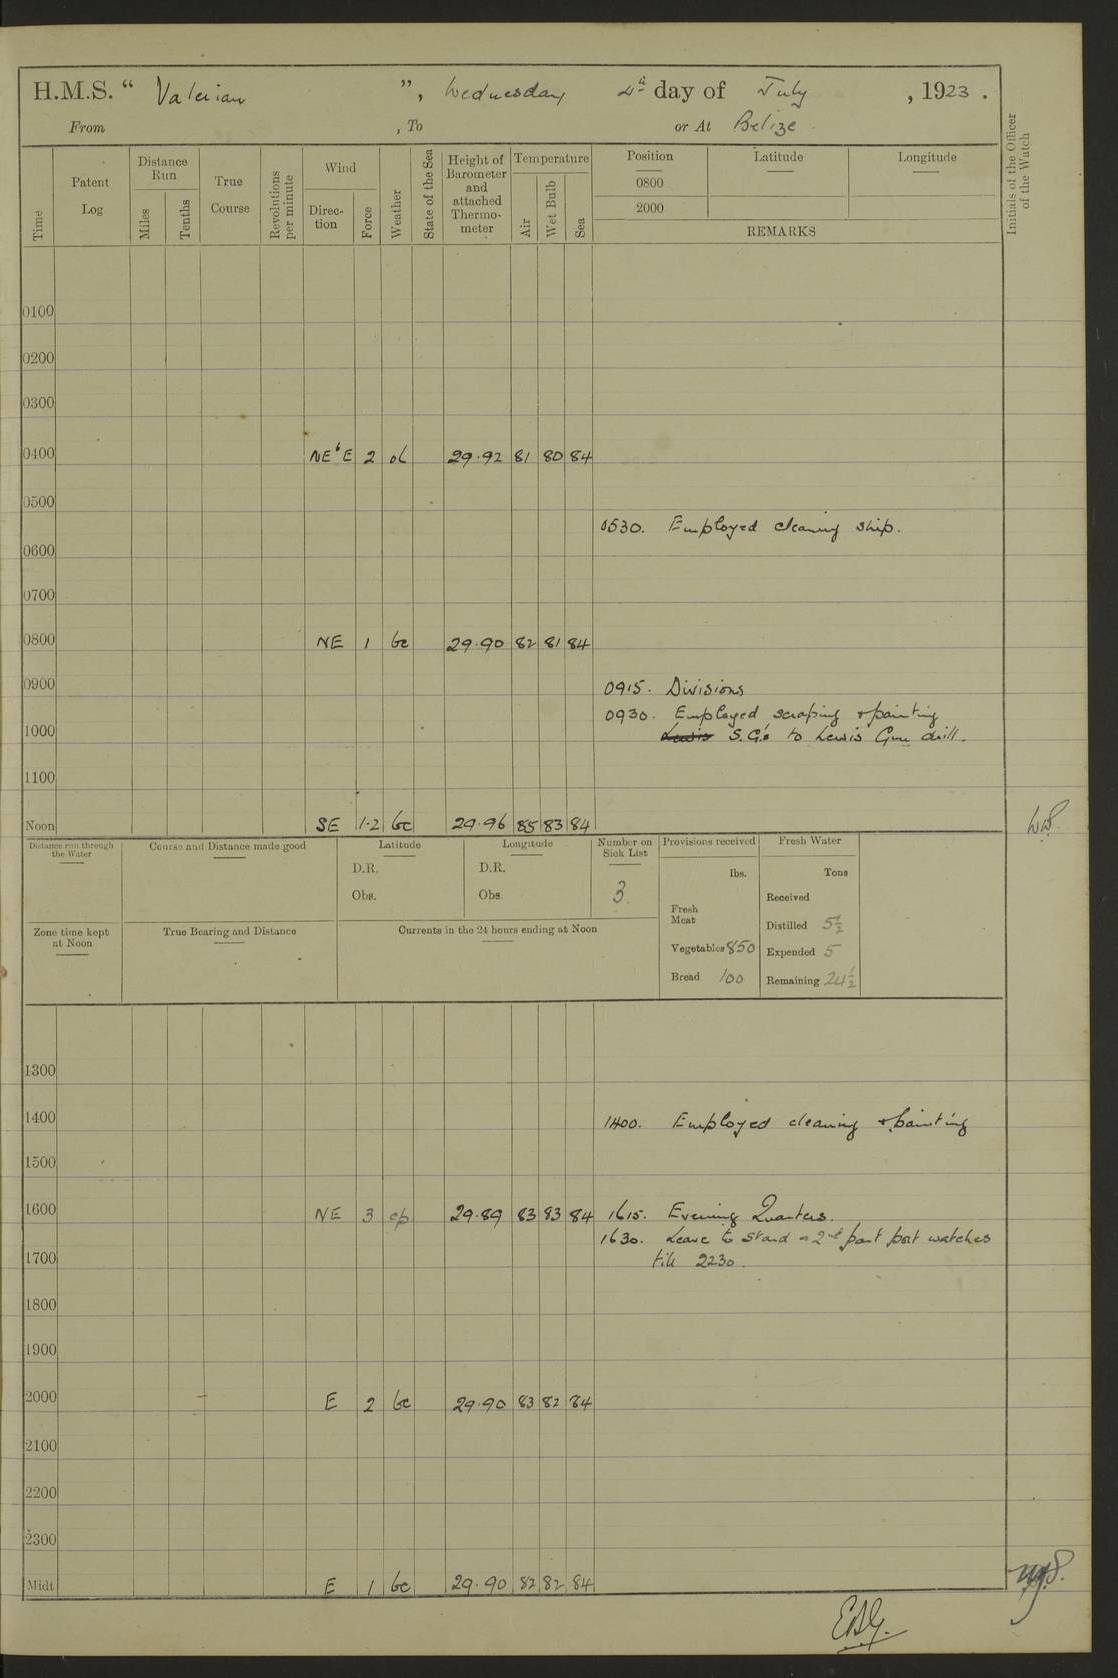 H.M.S. “ Valerian ”, Wednesday 4th day of July , 1923 .
From , To or At Belize .
Time
Patent Log
Distance Run
Miles
Tenths
True Course
Revolutions per minute
Wind
Direction
Force
Weather
State of the Sea
Height of Barometer and attached Thermometer
Temperature
Air
Wet Bulb
Sea
Position
0800
2000
Latitude
Longitude
REMARKS
Initials of the Officer of the Watch
0100
0200
0300
0400 NE'E 2 oc 29.92 81 80 84
0500
0530. Employed cleaning ship.
0600
0700
0800 NE 1 bc 29.90 82 81 84
0900
0915. Divisions
0930. Employed scraping & painting
1000
Lewis S.G's to Lewis Gun drill.
1100
Noon SE 1-2 bc 29.96 85 83 84
Distance run through the Water
Course and Distance made good
Latitude
D.R.
Obs.
Longitude
D.R.
Obs.
Number on Sick List
3.
Provisions received
lbs.
Fresh Meat
Vegetables 850
Bread 100
Fresh Water
Tons
Received
Distilled 5½
Expended 5
Remaining 24½
Zone time kept at Noon
True Bearing and Distance
Currents in the 24 hours ending at Noon
1300
1400 1400. Employed cleaning & painting
1500
1600 NE 3 cp 29.89 83 83 84 1615. Evening Quarters.
1630. Leave to Starbd & 2nd part port watches
1700 till 2230.
1800
1900
2000 E 2 bc 29.90 83 82 84
2100
2200
2300
Midt. E 1 bc 29.90 82 82 84